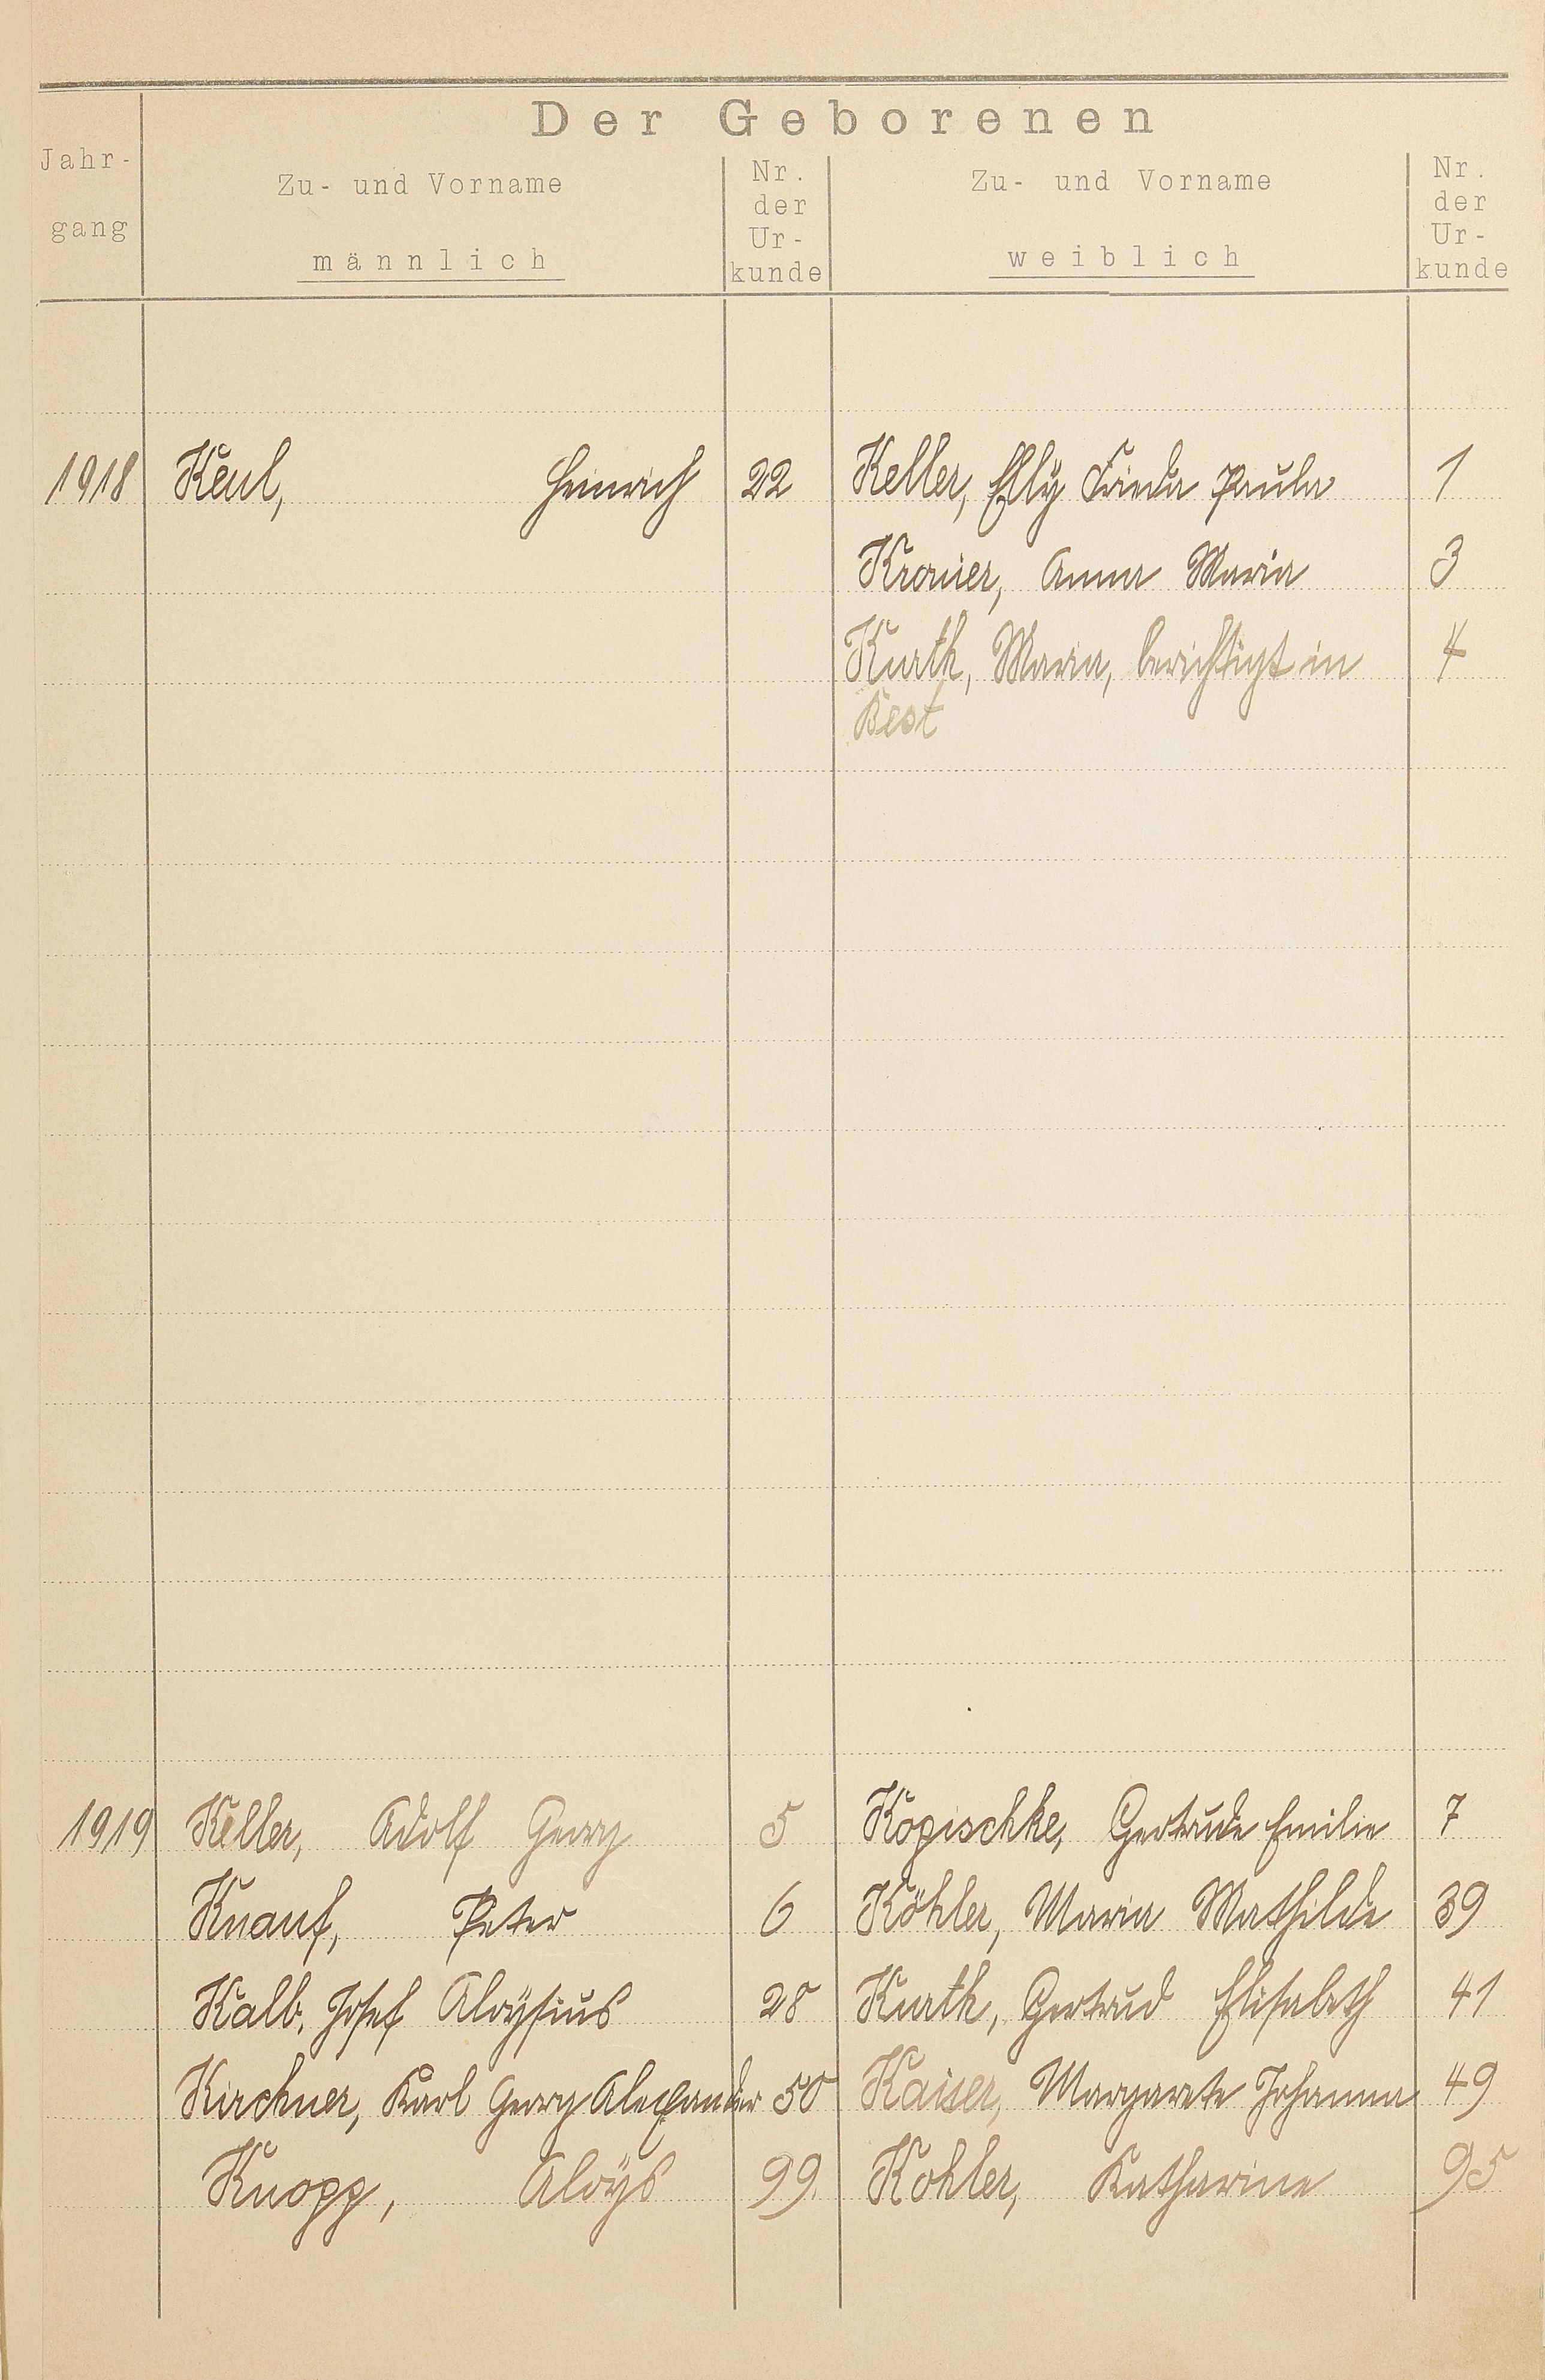 Der Geborenen
Jahr-
gang
Zu- und Vorname
männlich
Nr.
der
Ur-
kunde
Zu- und Vorname
weiblich
Nr.
der
Ur-
kunde
1918 Keul, Heinrich 22 Keller, Elly Frieda Paula 1
Kronier, Anna Maria 3
Kurth, Maria, berichtigt in 4
Best
1919 Keller, Adolf Georg 5 Kopischke, Gertrude Emilie 7
Knauf, Peter 6 Köhler, Maria Mathilde 39
Kalb, Josef Aloysius 28 Kurth, Gertrud Elisabeth 41
Kirchner, Karl Georg Alexander 50 Kaiser, Margarete Johanna 49
Knopp, Aloys 99. Kohler, Katharine 95